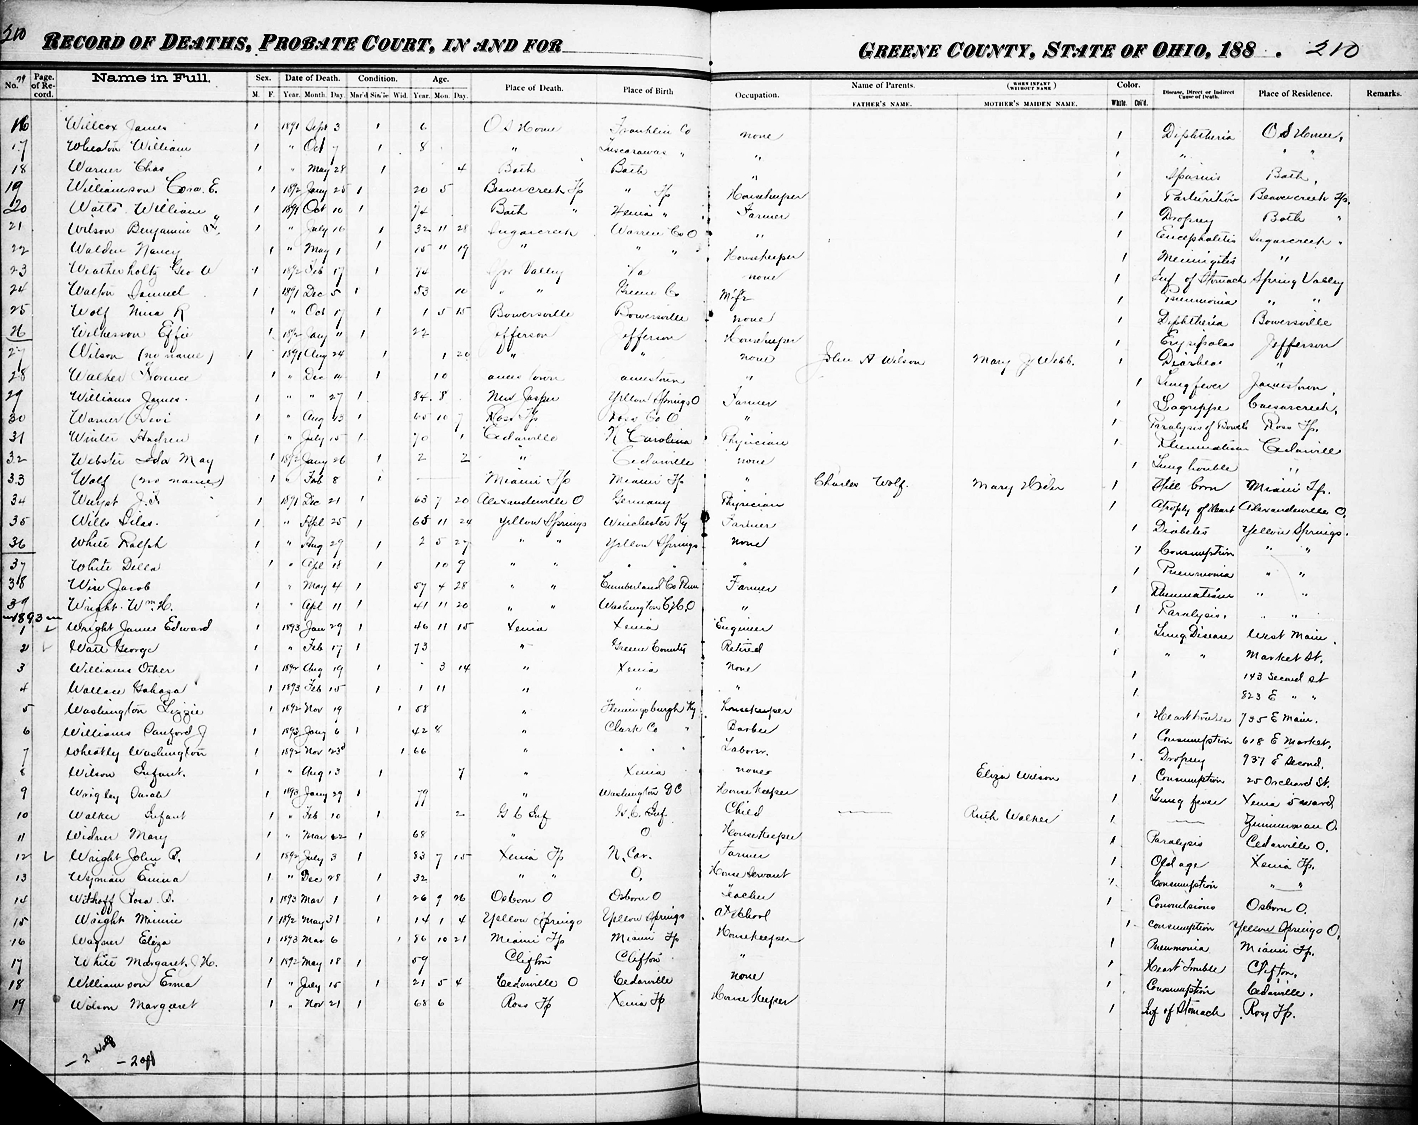 210 RECORD OF DEATHS, PROBATE COURT, IN AND FOR GREENE COUNTY, STATE OF OHIO, 188 . 210
No. Page of Record. Name in Full. Sex. M. F. Date of Death. Year. Month. Day. Condition. Mar'd Sin'le Wid. Age. Year. Mon. Day. Place of Death. Place of Birth Occupation. Name of Parents. FATHER'S NAME. (WHEN INFANT WITHOUT NAME) MOTHER'S MAIDEN NAME. Color. White. Col'd. Disease, Direct or Indirect Cause of Death. Place of Residence. Remarks.
16 Willcox James 1 1891 Sept 3 1 6 O S Home Franklin Co none 1 Diphtheria O S Home,
17 Wheaton William 1 " Oct 7 1 8 " Tuscarawas " " 1 " " "
18 Warner Chas 1 " May 28 1 4 Bath Bath " 1 Spasms Bath,
19 Williamson Cora E. 1 1892 Jany 25 1 20 5 Beavercreek Tp " Tp Housekeeper 1 Parturition Beavercreek Tp.
20 Watts William 1 1891 Oct 10 1 74 Bath " Xenia " Farmer 1 Dropsy Bath "
21 Wilson Benjamin F. 1 " July 10 1 32 11 28 Sugarcreek Warren Co O " 1 Encephalitis Sugarcreek "
22 Walden Nancy 1 " May 1 1 15 11 19 " " Housekeeper 1 Meningitis "
23 Weatherholtz Geo W 1 1892 Feb 17 1 74 Spg Valley Va none 1 Inf of Stomach Spring Valley
24 Walton Samuel 1 1891 Dec 5 1 53 10 " " Greene Co Mfr 1 Pneumonia " "
25 Wolf Nina R 1 " Oct 17 1 1 5 15 Bowersville Bowersville none 1 Diphtheria Bowersville
26 Wilkerson Effie 1 1892 Jany 11 1 22 Jefferson Jefferson Housekeeper 1 Erysipelas Jefferson
27 Wilson (no name) 1 1891 Aug 24 1 1 20 " " none John A Wilson Mary J Webb. 1 Diarhea "
28 Walker Florence 1 " Dec 1 10 Jamestown Jamestown " 1 Lung fever Jamestown,
29 Williams James. 1 " " 27 1 84 8 New Jasper Yellow Springs O Farmer 1 Lagrippe Caesarcreek,
30 Warner Levi 1 " Aug 13 1 65 10 7 Ross Tp Ross Co O " 1 Paralysis of Bowels Ross Tp.
31 Winter Andrew 1 " July 15 1 70 1 Cedarville N Carolina Physician 1 Rheumatism Cedarville
32 Webster Ida May 1 1892 Jany 26 1 2 2 " Cedarville none 1 Lung trouble "
33 Wolf (no name) 1 " Feb 8 1 — Miami Tp Miami Tp " Charles Wolf. Mary 1 Still born Miami Tp.
34 1 1891 Dec 21 1 63 7 20 Alexanderville O Germany Physician 1 Atrophy of Heart Alexanderville O.
35 Wills Silas. 1 " Apl 25 1 65 11 24 Yellow Springs Winchester Ky Farmer 1 Diabetes Yellow Springs.
36 White Ralph 1 " Aug 29 1 2 5 27 " " Yellow Springs none 1 Consumption " "
37 White Della 1 " Apl 18 1 10 9 " " " " " 1 Pneumonia " "
38 Wise Jacob 1 " May 4 1 57 4 28 " " Cumberland Co Penn Farmer 1 Rheumatism " "
39 Wright Wm H. 1 " Apl 11 1 41 11 20 " " Washington C H O " 1 Paralysis. " "
1893
1 Wright James Edward 1 1893 Jan 29 1 46 11 15 Xenia Xenia Engineer 1 Lung Disease West Main.
2 Watt George 1 " Feb 17 1 73 " Greene County Retired 1 " " Market St.
3 Williams Other 1 1892 Aug 19 1 3 14 " Xenia None 1 143 Second st
4 Wallace 1 1893 Feb 15 1 1 11 " " " 1 823 E " "
5 Washington Lizzie 1 1892 Nov 19 1 58 " Flemingsburgh Ky Housekeeper 1 Heart trouble 735 E Main.
6 Williams Sanford J 1 1893 Jany 6 1 42 8 " Clark Co " Barber 1 Consumption 618 E Market.
7 Wheatly Washington 1 1892 Nov 23 1 66 " " " Laborer. 1 Dropsy 937 E Second.
8 Wilson Infant. 1 " Aug 13 1 7 " Xenia none Eliza Wilson 1 Consumption 25 Orchard St.
9 Wrigley Sarah 1 1893 Jany 29 1 79 " Washington DC Housekeeper 1 Lung fever Xenia 5 ward
10 Walker Infant 1 " Feb 10 1 2 G C Inf G. C. Inf. Child — Ruth Walker 1 — Zimmerman O.
11 Widner Mary 1 " Mar 1 68 " O Housekeeper 1 Paralysis Cedarville O.
12 Wright John B. 1 1892 July 3 1 83 7 15 Xenia Tp N. Car. Farmer 1 Old age Xenia Tp.
13 Wyman Emma 1 " Dec 28 1 32 " " O. House Servant 1 Consumption "
14 Withoff Rosa B. 1 1893 Mar 1 1 26 9 26 Osborn O Osborn O Teacher 1 Convulsions Osborn O.
15 Wright Minnie 1 1892 May 31 1 14 1 4 Yellow Springs Yellow Springs At School 1 Consumption Yellow Springs O.
16 Wagner Eliza 1 1893 Mar 6 1 86 10 21 Miami Tp Miami Tp Housekeeper 1 Pneumonia Miami Tp.
17 White Margaret H. 1 1892 May 18 1 59 Clifton Clifton " 1 Heart Trouble Clifton.
18 Williamson Erma 1 " July 15 1 21 5 4 Cedarville O Cedarville none 1 Consumption Cedarville.
19 Wilson Margaret 1 " Nov 21 1 68 6 Ross Tp Xenia Tp House Keeper 1 Inf of Stomach Ross Tp.